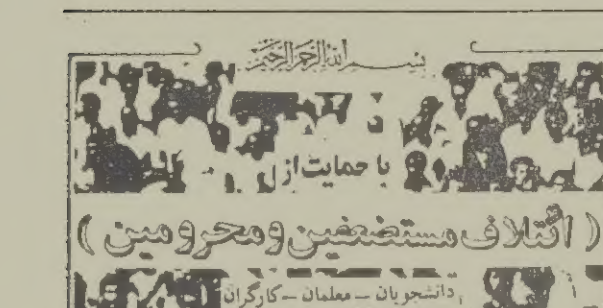 بسم الله الرحمن الرحیم
با حمایت از
( ائتلاف مستضعفین و محرومین )
دانشجویان – معلمان – کارگران